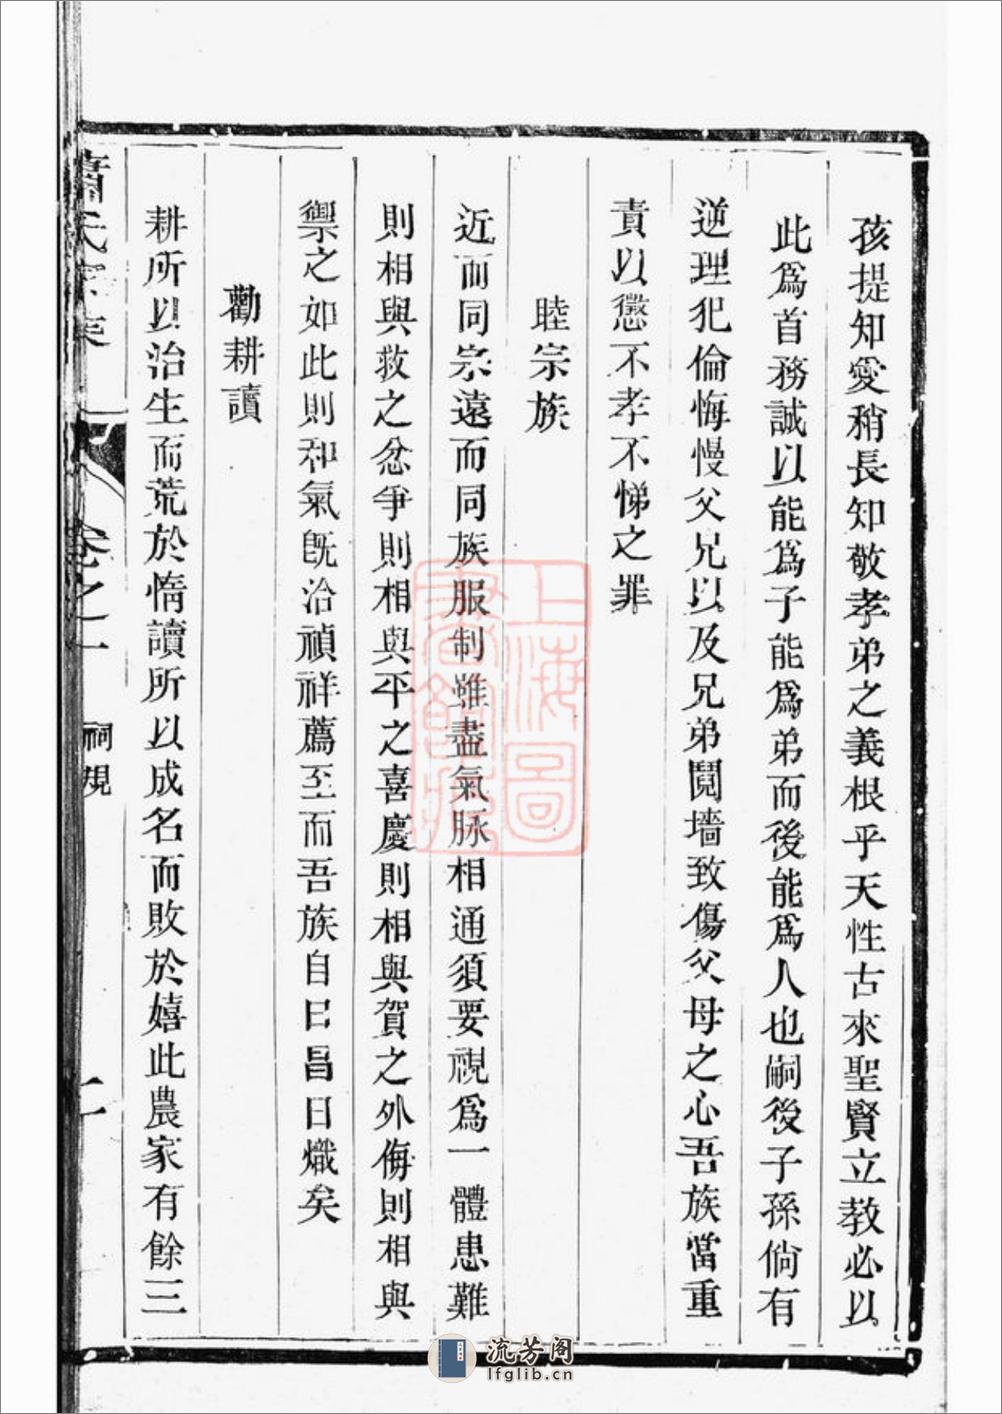 孩提知愛稍長知敬孝弟之義根乎天性古來聖賢立教必以
此爲首務誠以能爲子能爲弟而後能爲人也嗣後子孫倘有
逆理犯倫悔慢父兄以及兄弟鬩墻致傷父母之心吾族當重
責以懲不孝不悌之罪
睦宗族
近而同宗遠而同族服制雖盡氣脉相通須要視爲一體患難
則相與救之忿爭則相與平之喜慶則相與賀之外侮則相與
禦之如此則和氣旣洽禎祥薦至而吾族自日昌日熾矣
勸耕讀
耕所以治生而荒於惰讀所以成名而敗於嬉此農家有餘三
蕭氏家乗
卷之一
祠規
二
上海圖書館藏
流芳阁
lfglib.cn